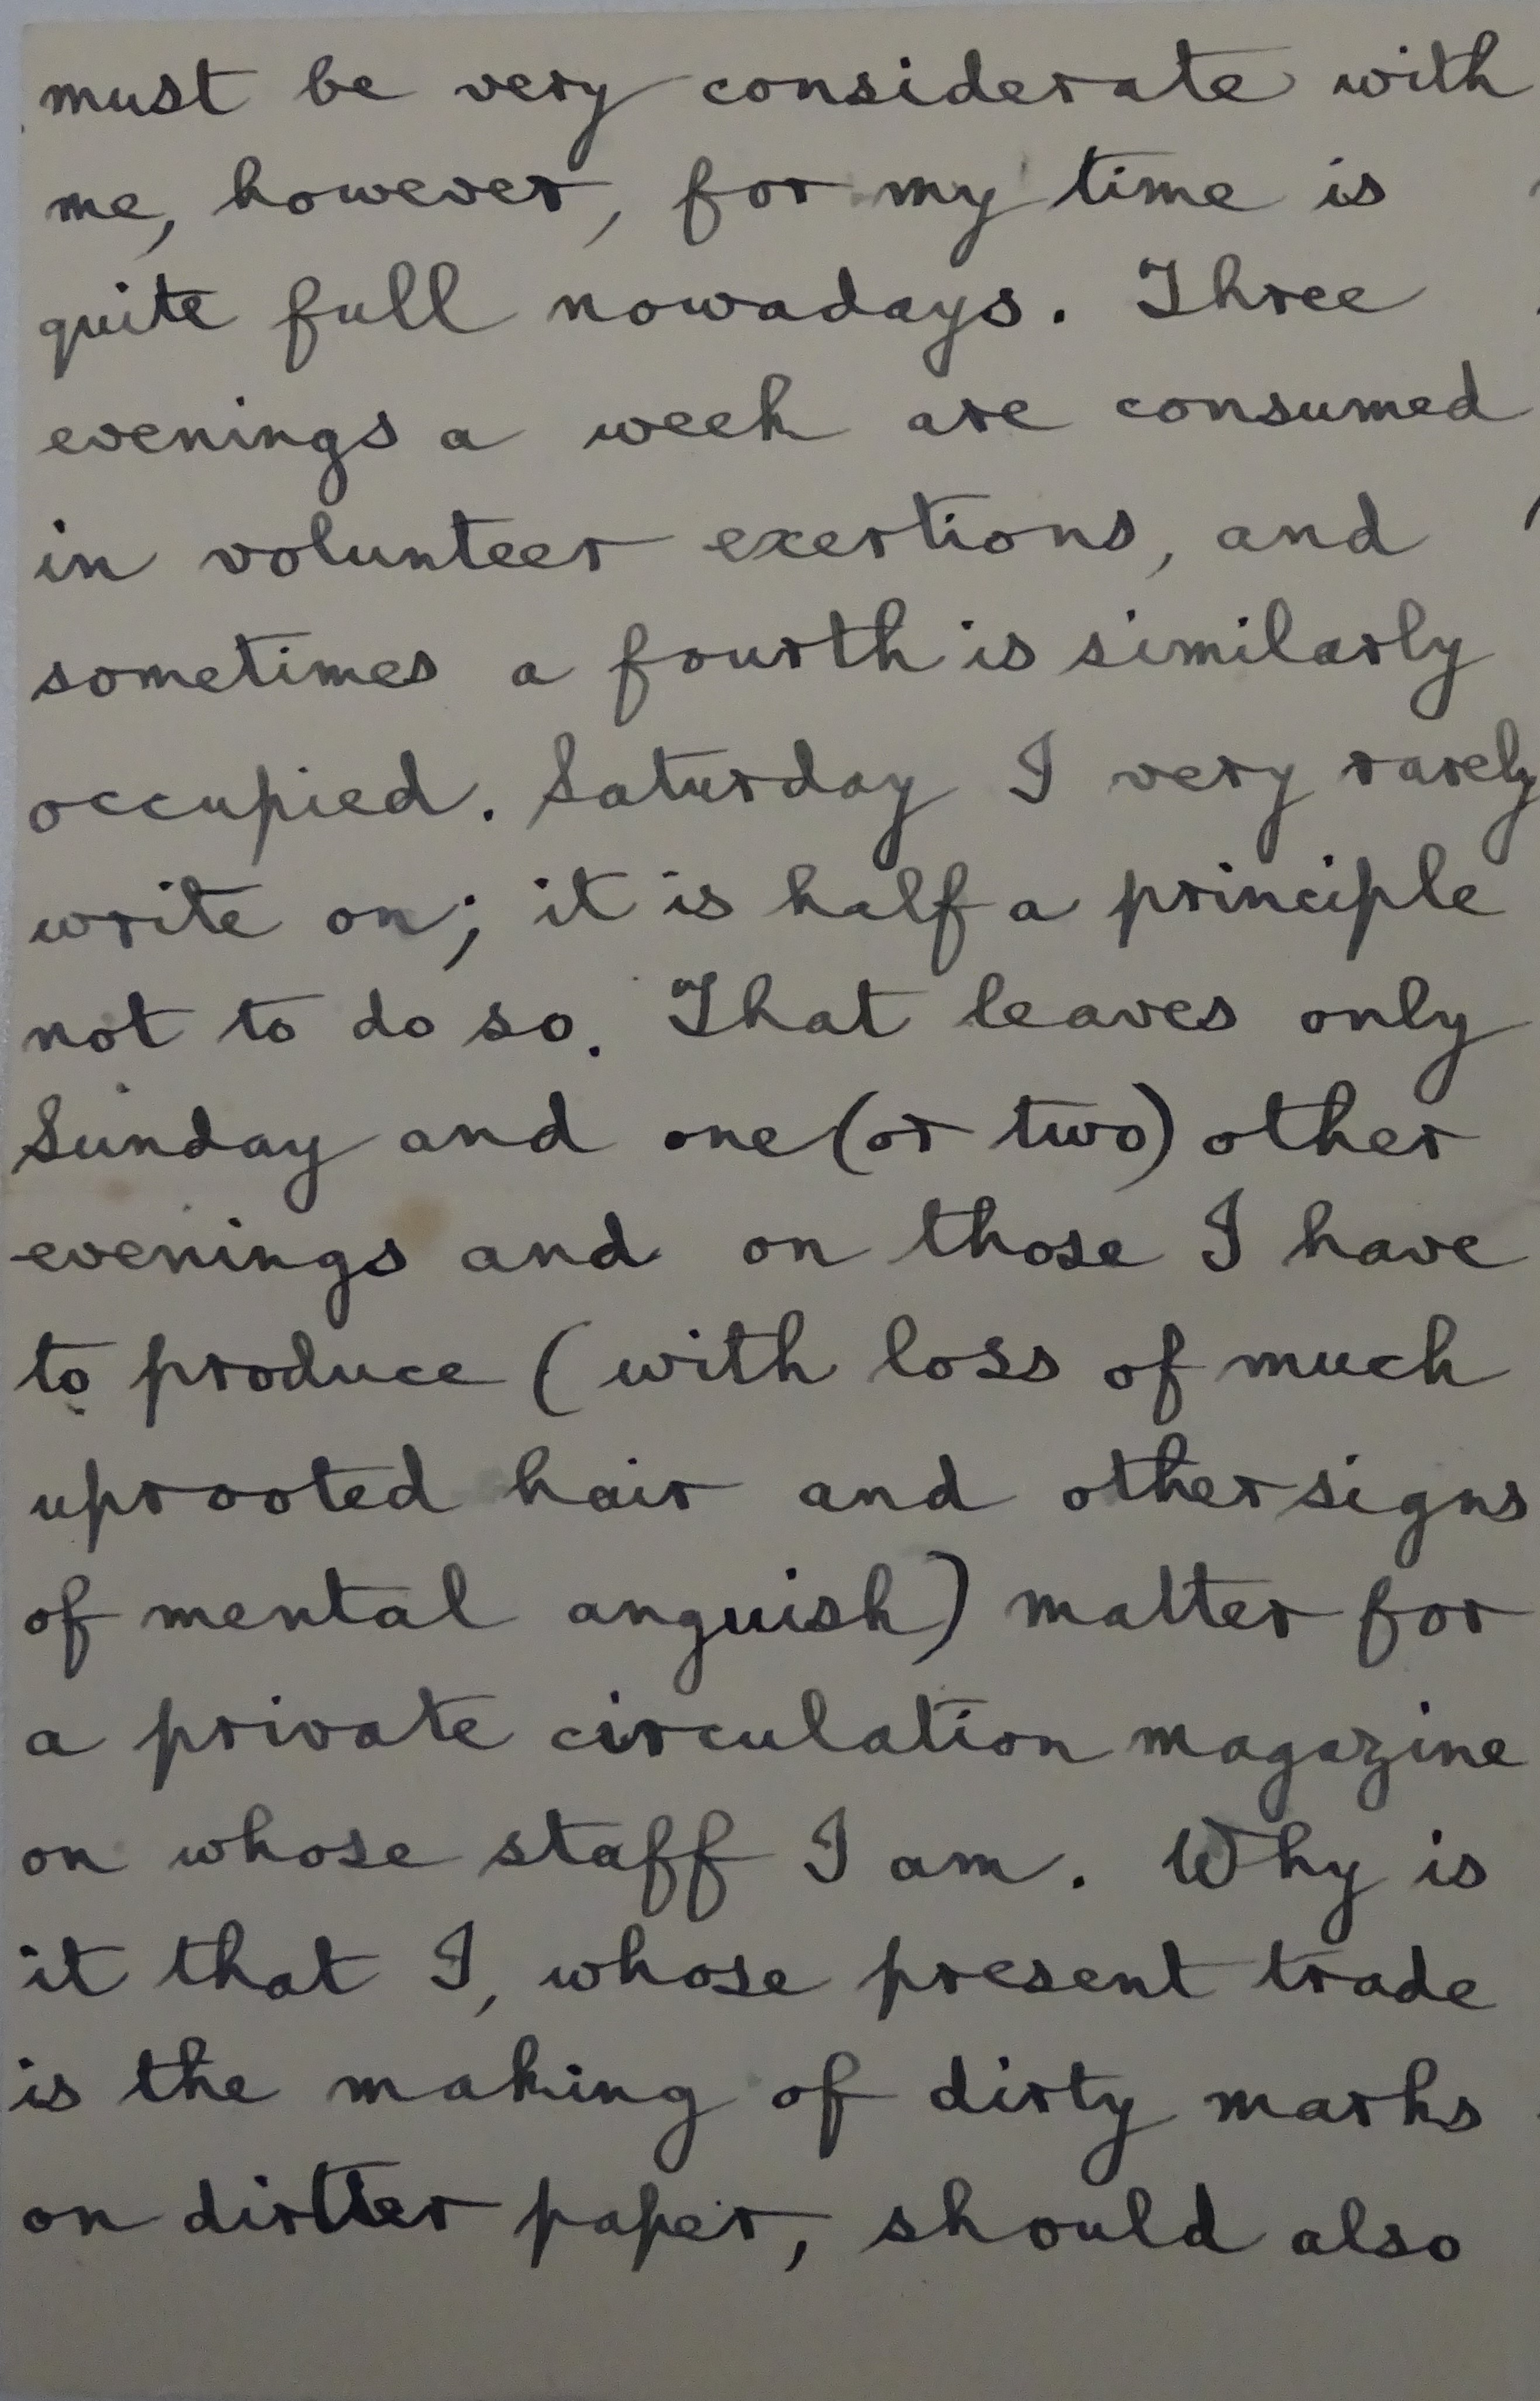 must be very considerate with
me, however, for my time is
quite full nowadays. Three
evenings a week are consumed
in volunteer exertions, and
sometimes a fourth is similarly
occupied. Saturday I very rarely
write on; it is half a principle
not to do so. That leaves only
Sunday and one (or two) other
evenings and on those I have
to produce (with loss of much
uprooted hair and other signs
of mental anguish) matter for
a private circulation magazine
on whose staff I am. Why is
it that I, whose present trade
is the making of dirty marks
on dirtier paper, should also